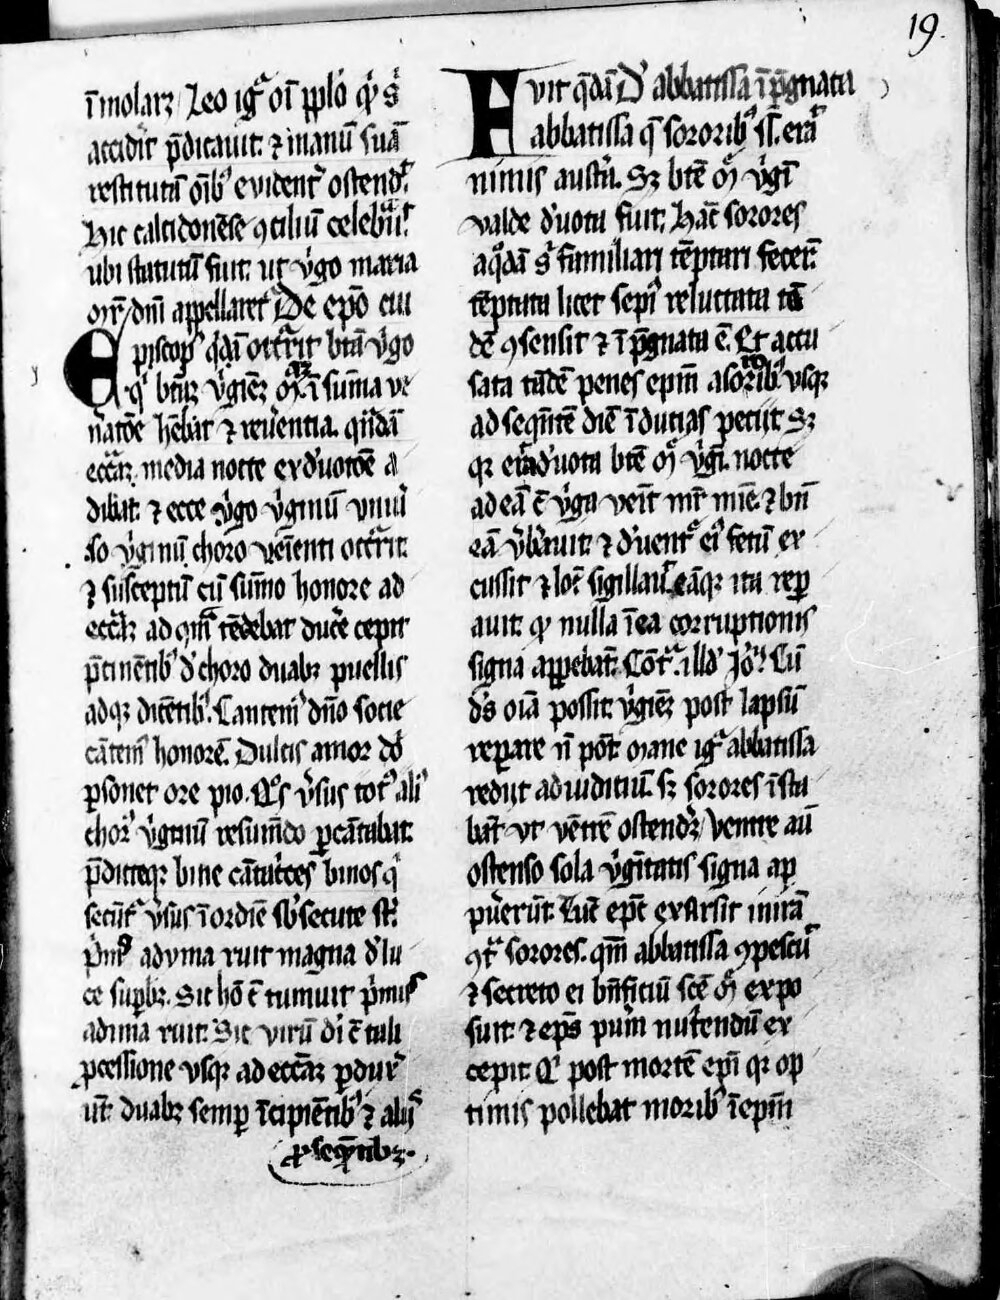 19.
īmolarꝫ Leo igͥ oī pplo qͥ s̉
accidit p̄dicauit. ⁊ manū suā
restitutā oībꝰ euident̉ ostendꝰ.
Hic calcidonēse ꝯciliū celebrͣuͭ.
ubi statutū fuit. ut v̉go maria
dn̄i appellaret̉ De ep̄o cui
Episcopꝰ qͥdā occͬrit btā v̉go
qͥ btāꝫ v̉giēꝫ in sum̄a ve
n̉atōe hēbat ⁊ reủentia. qͥdā
ecc̄aꝫ media nocte ex d̉uotōe a
dibat. ⁊ ecce v̉go v̉ginū vniủ
so v̉ginū choro ven̄ienti occͬrit.
⁊ susceptū cū sum̄o honore ad
ecc̄aꝫ ad qm̄ tēdebat duc̉e cepit
p̄cinētibꝰ d̉ choro duabꝫ puellis
adqꝫ dicētibꝰ. Cantemꝰ dn̄o socie
cātemꝰ honorē. Dulcis amor
ꝑsonet ore pio. v̉sus totꝰ aliꝰ
chorꝰ v̉ginū resumēdo ꝑcātabat.
p̄dicteqꝫ bine cātͥces binos qͥ
secūtͬ v̉sus ī ordīe sb̉secute st̄.
p̉mꝰ ad yma ruit magna d̉ lu
ce suꝑbꝫ. Sic hō ē tumuit p̉mus
ad ima ruit. Sic virū ē tali
ꝓcessione vsqꝫ ad ecc̄aꝫ ꝑdux̉
ūt. duabꝫ semꝑ īcipiētibꝰ ⁊ alijs
ꝓseqͣntibꝫ.
Fvit qͥdā D̉ abbatissa īp̄gnata
abbatissa q̄ sororibꝰ sͥ. erāͭ
nimis aust̉a. Sꝫ btē v̉gī
valde d̉uota fuit. Hāc sorores
a qͦdā sͥ familiari tēptari fecer̄t
tēptata licet sepiꝰ reluctata tā
dē ꝯsensit ⁊ īp̄gnata ē. Et accu
sata tādē penes ep̄m a sororibꝰ vsqꝫ
ad seqͣntē diē īdutias petijt Sꝫ
qꝫ erat d̉uota btē v̉gī. nocte
ad eā ē v̉go venit mͬ mīe. ⁊ bn̄
eā v̉b̉auit. ⁊ d̉ uentͬ eiꝰ fetū ex
cussit ⁊ loc̄ sigillauͭ. eāqꝫ ita reꝑ
auit. qͩ nulla ī ea corruptionis
signa appebat. Cōtͬ. illd̉ Jōꝰ. Cū
d̉s oīa possit. v̉giēꝫ post lapsū
reparare n̄ pōt mane igͥ abbatissa
redijt ad iuditiū. sꝫ sorores īsta
bāt vt vētrē ostend̉ꝫ ventre aū
ostenso sola v̉gītatis signa ap
pủerūt. Tūc ep̄c exarsit in irā
ꝯͭ sorores. qm̄ abbatissa ꝯpescuͭ
⁊ secreto ei bn̄ficiū sc̄e expo
suit. ⁊ ep̄s pủm nut̉endū ex
cepit. Qͥ post mortē ep̄i qꝫ op
timis pollebat moribꝰ ī ep̄m